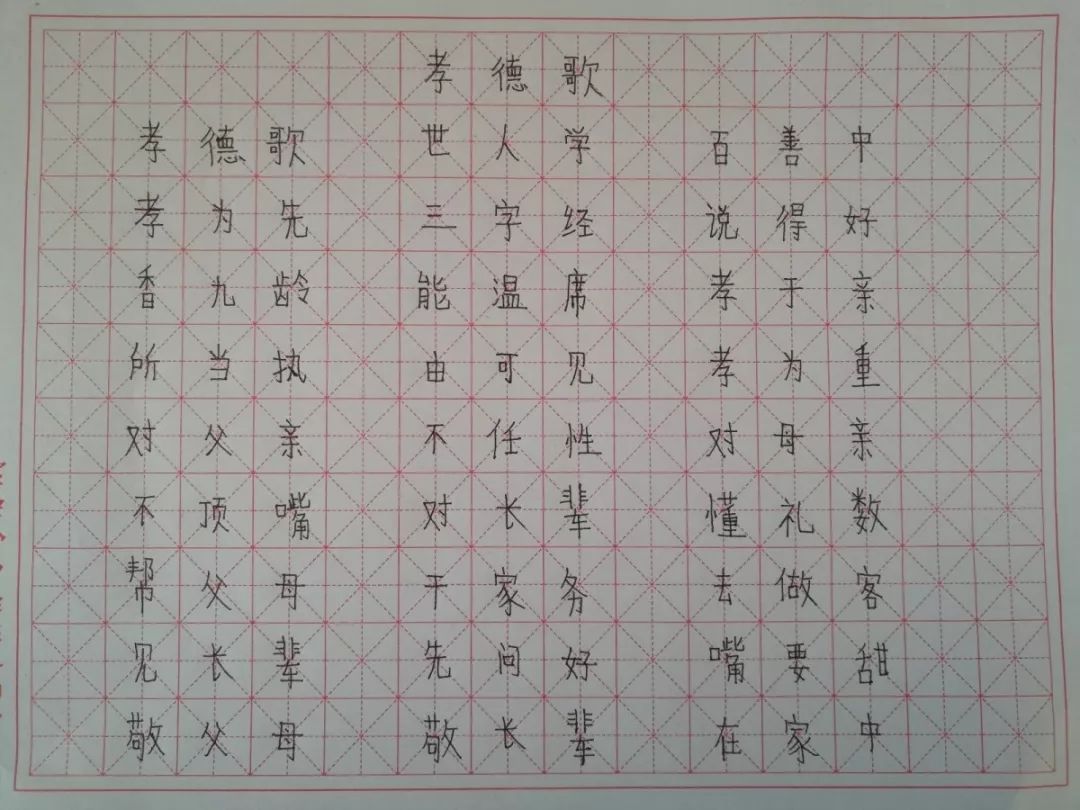 孝德歌
孝德歌 世人学 百善中
孝为先 三字经 说得好
香九龄 能温席 孝于亲
所当执 由可见 孝为重
对父亲 不任性 对母亲
不顶嘴 对长辈 懂礼数
帮父母 干家务 去做客
见长辈 先问好 嘴要甜
敬父母 敬长辈 在家中